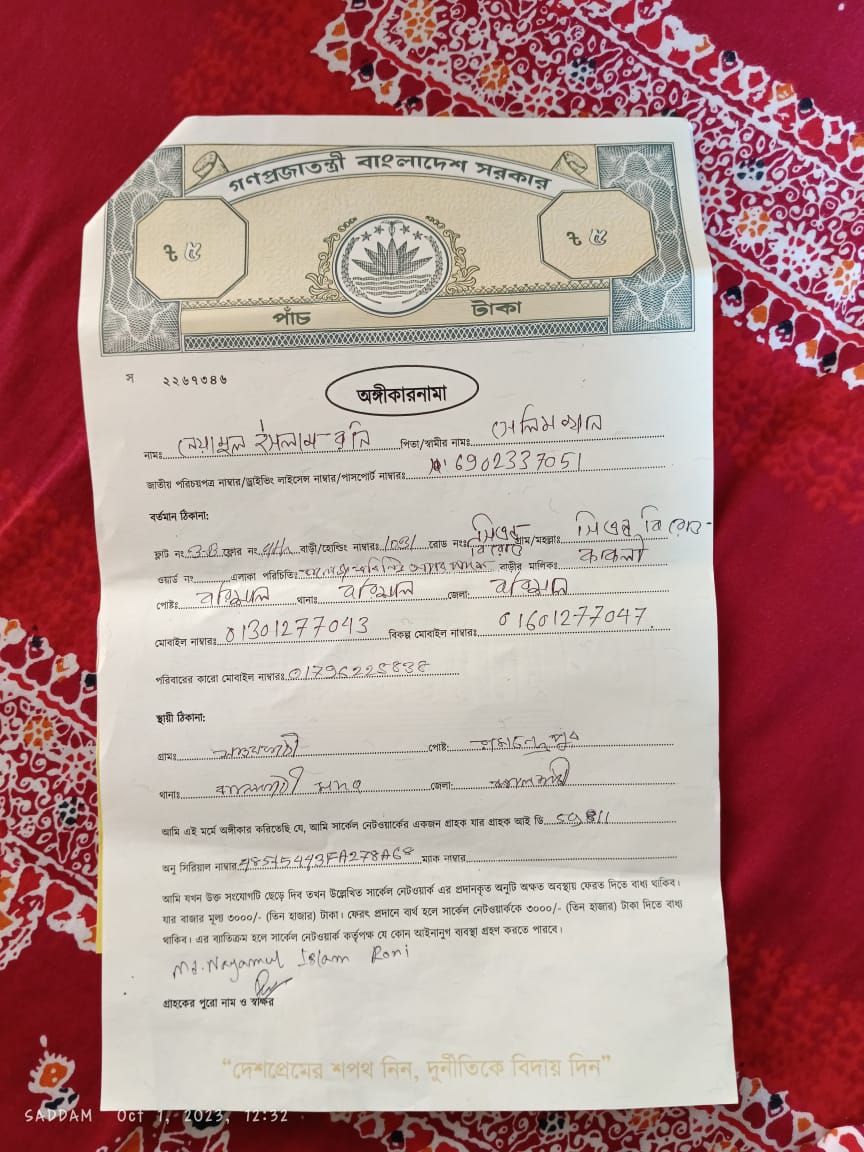 গণপ্রজাতন্ত্রী বাংলাদেশ সরকার
৳ ৫ ৳ ৫
পাঁচ টাকা
স ২২৬৭৩৪৬
অঙ্গীকারনামা
নামঃ নেয়ামুল ইসলাম রনি পিতা/স্বামীর নামঃ সেলিম খান
জাতীয় পরিচয়পত্র নাম্বার/ড্রাইভিং লাইসেন্স নাম্বার/পাসপোর্ট নাম্বারঃ 6902337051
বর্তমান ঠিকানা:
ফ্লাট নং 3-B ফ্লোর নং বাড়ী/হোল্ডিং নাম্বারঃ রোড নংঃ গ্রাম/মহল্লাঃ
ওয়ার্ড নং এলাকা পরিচিতিঃ বাড়ীর মালিকঃ
পোষ্টঃ বরিশাল থানাঃ বরিশাল জেলা: বরিশাল
মোবাইল নাম্বারঃ 01301277043 বিকল্প মোবাইল নাম্বারঃ 01601277047
পরিবারের কারো মোবাইল নাম্বারঃ 01796225838
স্থায়ী ঠিকানা:
গ্রামঃ পোষ্ট:
থানাঃ জেলা:
আমি এই মর্মে অঙ্গীকার করিতেছি যে, আমি সার্কেল নেটওয়ার্কের একজন গ্রাহক যার গ্রাহক আই ডি
অনু সিরিয়াল নাম্বার 48545443FA278A68 ম্যাক নাম্বার
আমি যখন উক্ত সংযোগটি ছেড়ে দিব তখন উল্লেখিত সার্কেল নেটওয়ার্ক এর প্রদানকৃত অনুটি অক্ষত অবস্থায় ফেরত দিতে বাধ্য থাকিব।
যার বাজার মূল্য ৩০০০/- (তিন হাজার) টাকা। ফেরৎ প্রদানে ব্যর্থ হলে সার্কেল নেটওয়ার্ককে ৩০০০/- (তিন হাজার) টাকা দিতে বাধ্য
থাকিব। এর ব্যতিক্রম হলে সার্কেল নেটওয়ার্ক কর্তৃপক্ষ যে কোন আইনানুগ ব্যবস্থা গ্রহণ করতে পারবে।
Md. Nayamul Islam Roni
গ্রাহকের পুরো নাম ও স্বাক্ষর
"দেশপ্রেমের শপথ নিন, দুর্নীতিকে বিদায় দিন"
SADDAM Oct 1, 2023, 12:32